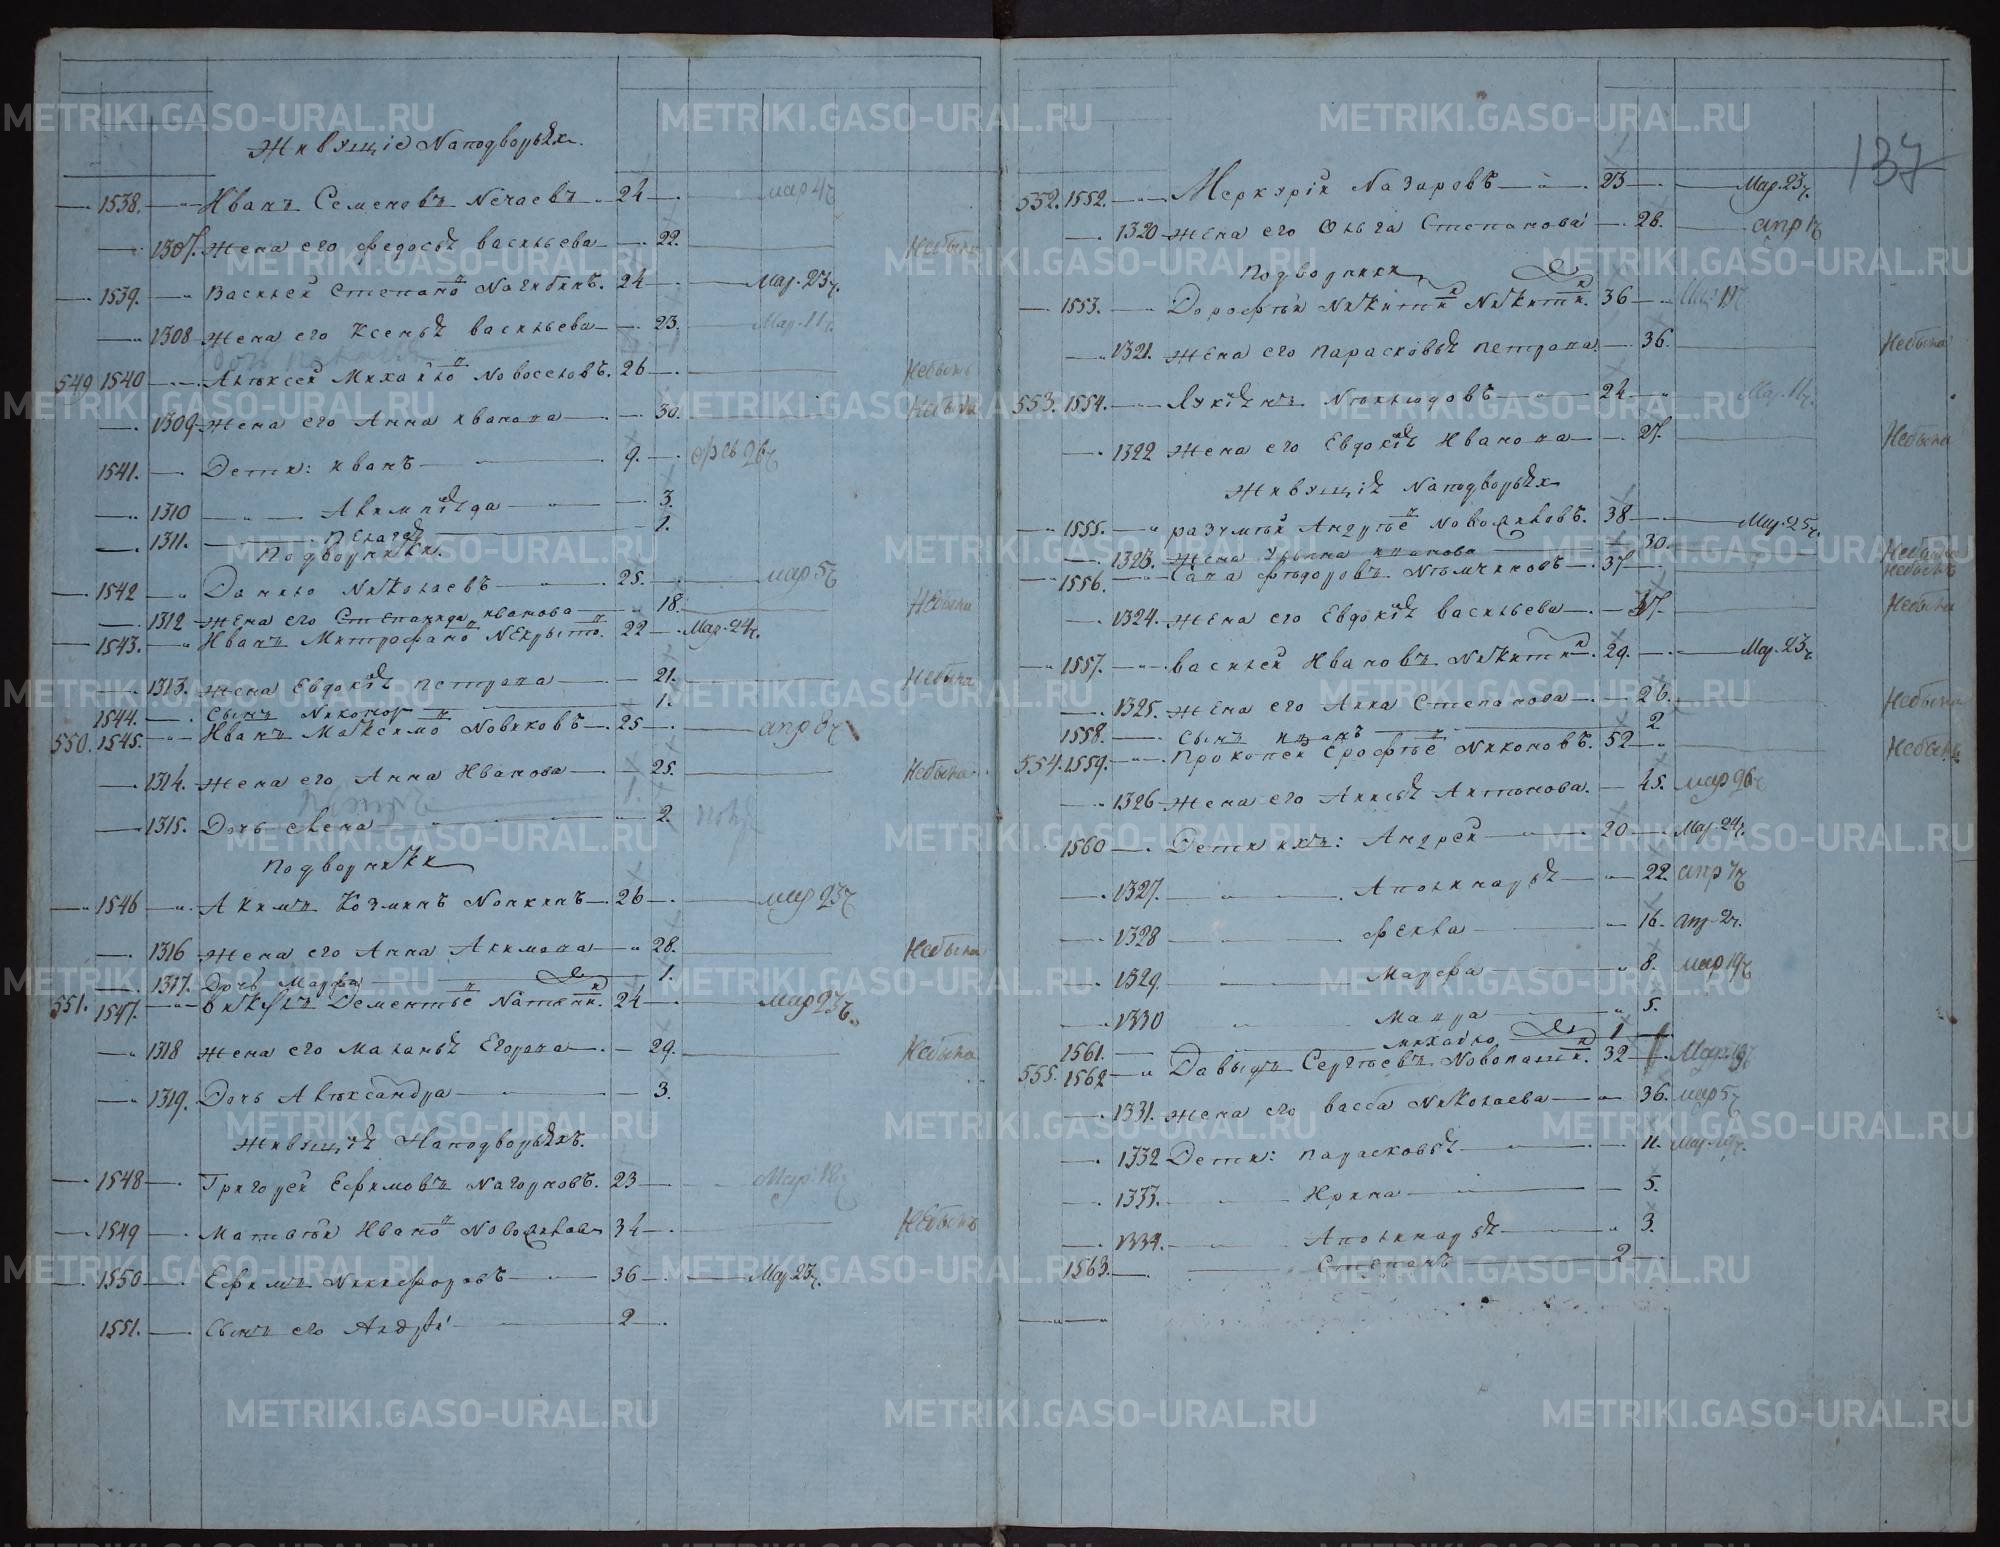 Живущіе Наподворьѣх
1538. Иванъ Семеновъ Нечаевъ 24 мар 4ч
1307. Жена его Федосьѣ Васильева 22. Небыла
1539. Василей Степано Нагибинъ. 24 Мар. 23ч.
1308 Жена его Ксеньѣ Васильева 23. Мар. 11ч.
549 1540 Алѣксей Михайло Новоселовъ. 26 Небылъ
1309 Жена его Анна Ивановa 30. Небыла
1541. Дети: Иванъ 9. 26ч
1310 3.
1311. Пелагѣѣ 1.
Подворники.
1542 Данило Николаевъ 25. мар 5ч
1312 Жена его Степанида Иванова 18. Небыла
1543. Иванъ Митрофано 22 Мар. 24ч.
1313. Жена Евдокѣѣ Петрова 21. Небыла
1544. Сынъ Никоноръ 1.
550. 1545. Иванъ Максимо Новиковъ 25 апр 8ч
1314. Жена его Анна Иванова 25. Небыла
Петръ 1.
1315. Дочь Елена 2.
Подворники
1546 Акимъ Козминъ 26 мар 23ч
1316 Жена его Анна Акимова 28. Небыла
1317. Дочь Марфа 1.
551. 1547. Викулъ Дементье 24 мар 23ч.
1318 Жена его Маланьѣ Егорова 29. Небыла
1319. Дочь Алѣксандра 3.
Живущіѣ Наподворьѣхъ.
1548 Григорей Ефимовъ Нагорновъ. 23 Мар. 18ч
1549 Матвѣй Ивано 34 Небылъ
1550 Ефимъ Никифоровъ 36 Мар. 23ч.
1551. Сынъ его Андрѣй 2
137
552. 1552. Меркурій Назаровъ 23 Мар. 23ч.
1320 Жена его Ольга Степанова 28. апр 1ч
Подворники
1553. Дорофѣй Никити Никити. 36 19ч
1321. Жена его Парасковьѣ Петрова. 36. Небыла
553. 1554. Лукіѣнъ Нѣклюдовъ 24 Мар. 11ч.
1322 Жена его Евдокіѣ Иванова 27. Небыла
Живущіѣ Наподворьѣх
1555. Разумѣй Андрѣе 38 Мар. 25ч.
1323. Жена Ульяна Иванова 30. Небыла
1556. Сава Фѣдоровъ Нѣмчиновъ 37 Небылъ
1324. Жена его Евдокіѣ Васильева 37. Небыла
1557. Василей Ивановъ Никити 29. Мар. 23ч
1325. Жена его Анна Степанова 26. Небыла
1558. Сынъ Иванъ 2
554. 1559. Прокопей Ерофѣе Никоновъ. 52 Небылъ
1326 Жена его Анисьѣ Антонова. 45. мар 26ч
1560 Дети ихъ: Андрей 20 Мар. 24ч.
1327. Аполинарьѣ 22 апр 1ч
1328 Фекла 16. Апр. 2ч.
1329. Марфа 8. мар 19ч
1330 Мавра 5.
1561. Михайло 1
555. 1562 Давыдъ Сергѣевъ Новопаши. 32 Мар. 19ч
1331. Жена его Васса Николаева 36. мар 5ч
1332 Дети: Парасковьѣ 11. Мар. 19ч.
1333. Ирина 5.
1334. Аполинарьѣ 3.
1563. Степанъ 2